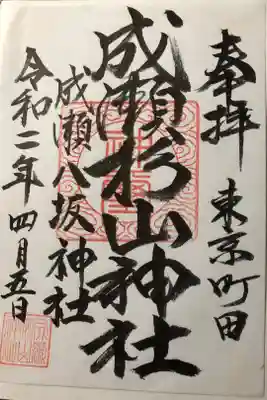 奉拝
東京町田
成瀬杉山神社
成瀬八坂神社
令和二年四月五日